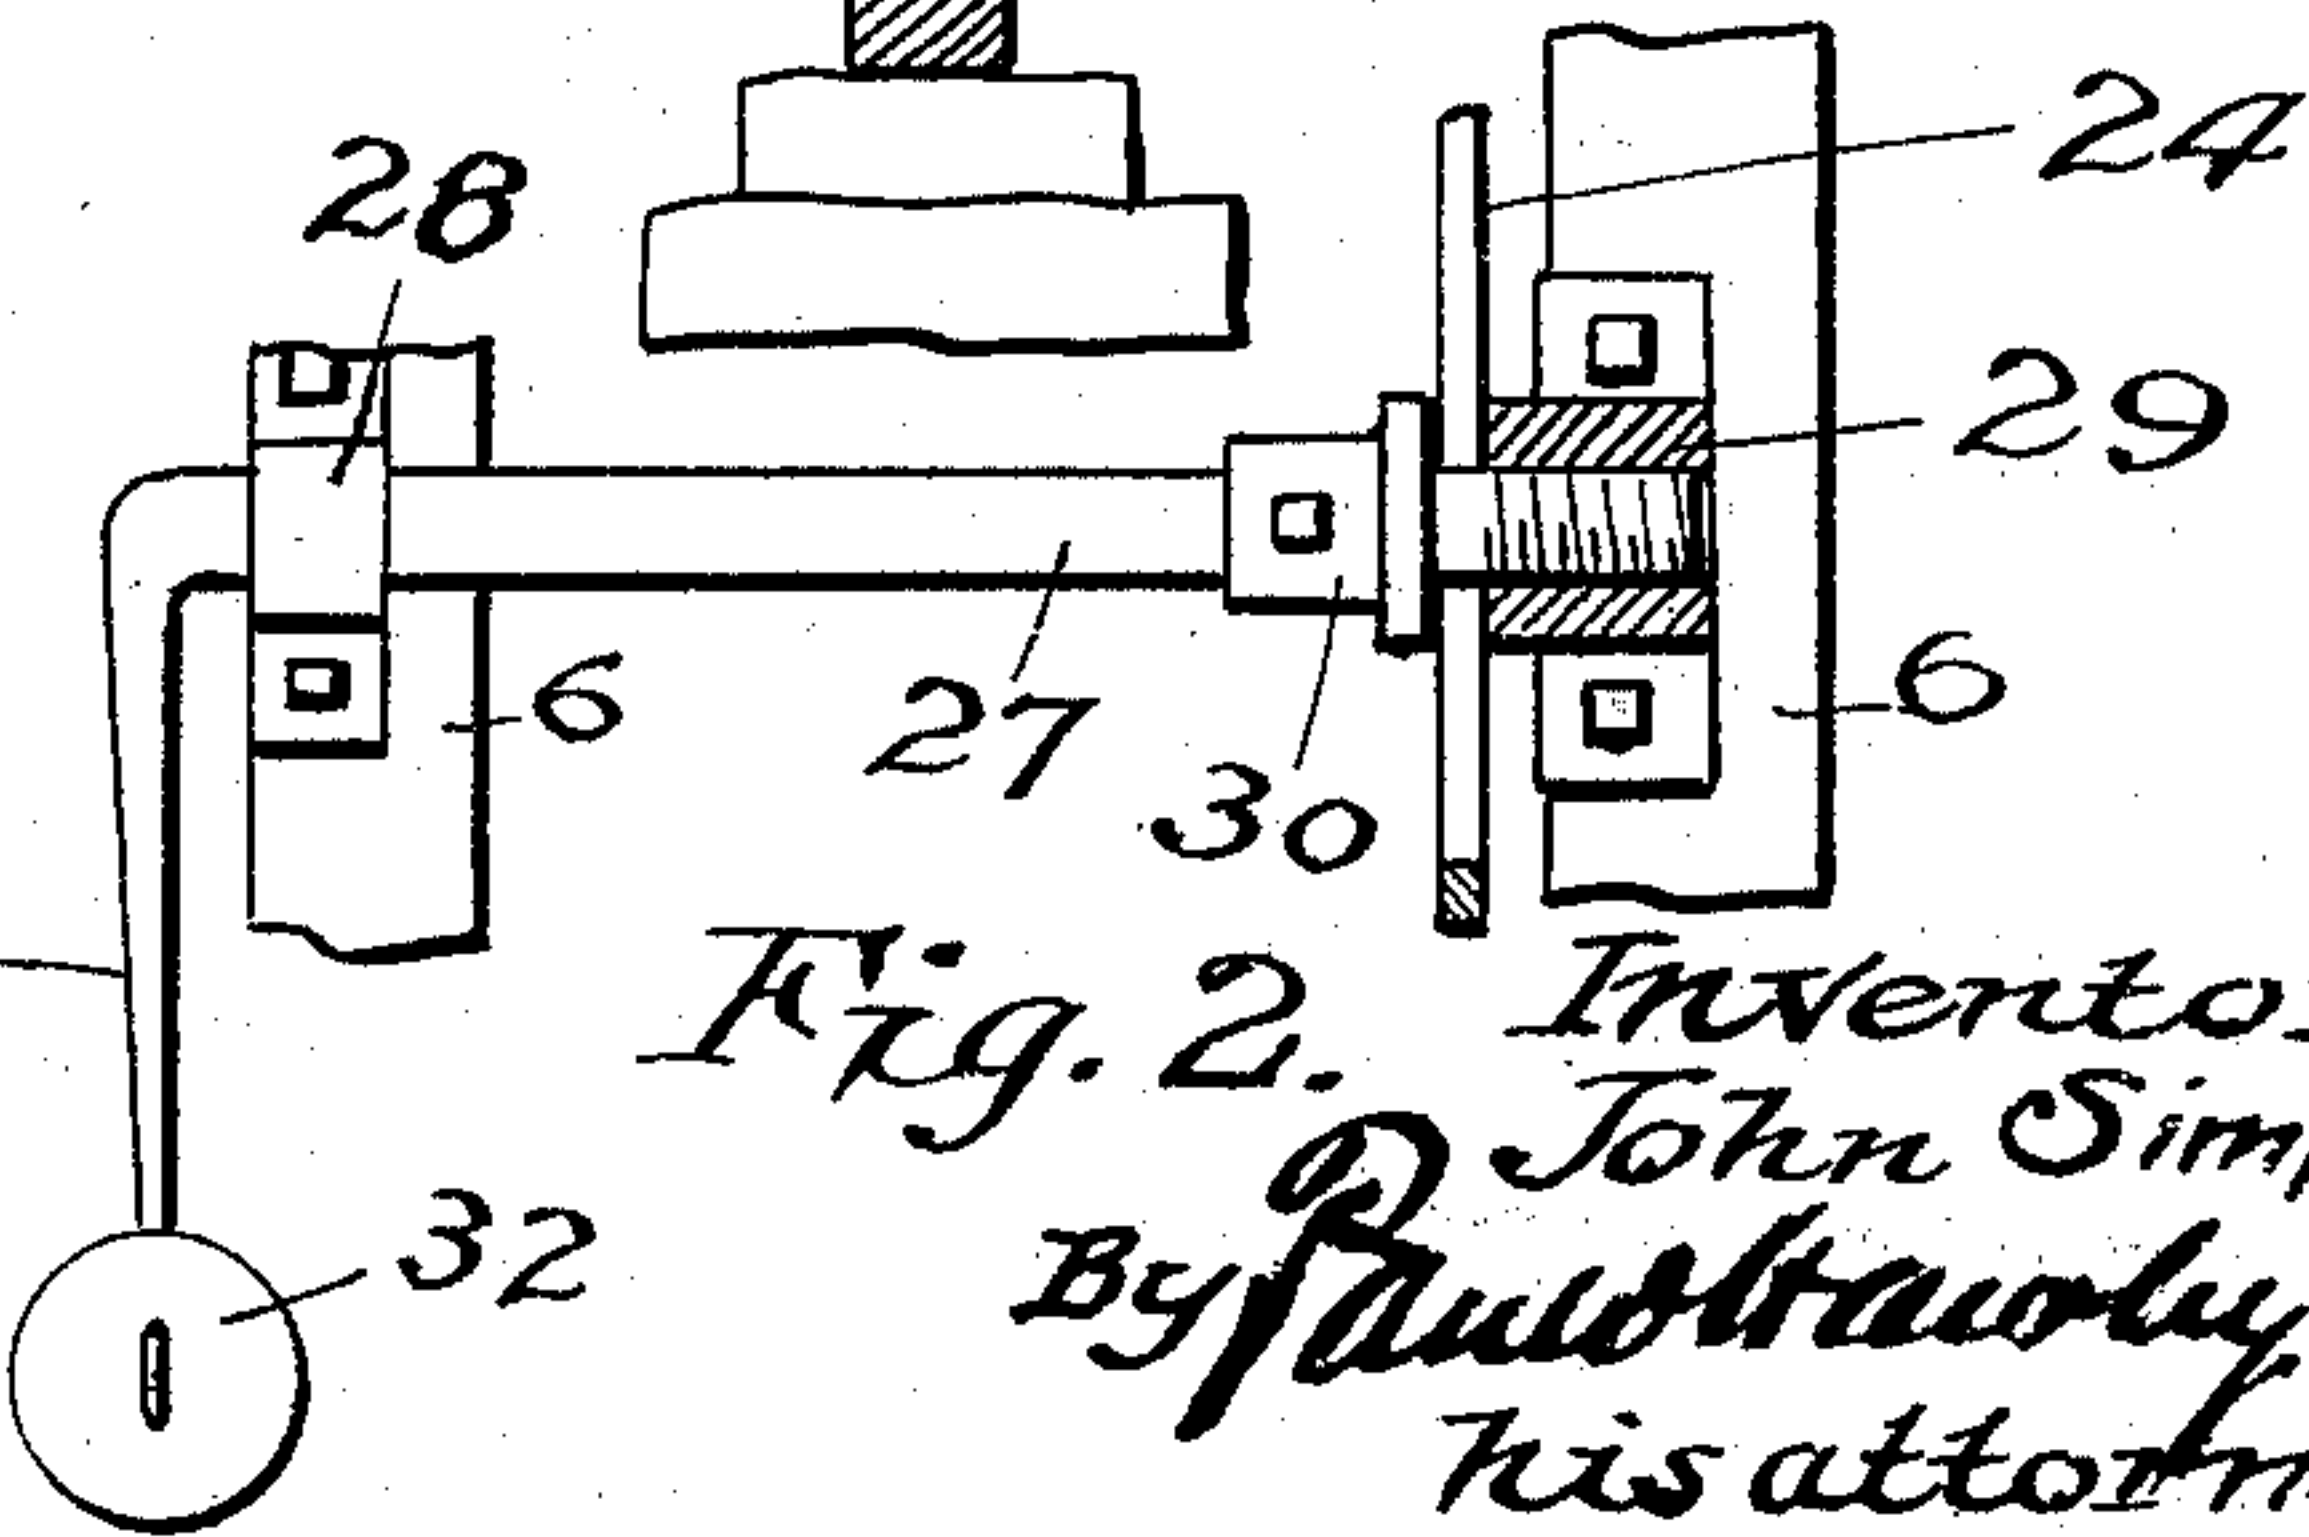 24
28
29
6
6
27
30
Fig. 2.
Invento
John Sim
By
his attorn
32